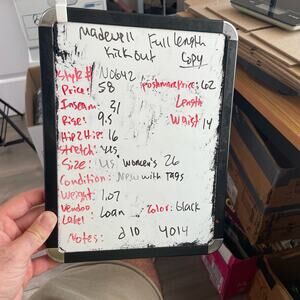 Madewell Full length
Kick Out Copy
Style #: N0642
Price: 58 Poshmark Price: 62
Inseam: 31 Length
Rise: 9.5 Waist 14
Hip 2 Hip: 16
Stretch: yes
Size: US Women's 26
Condition: New with Tags
Weight: 1.07
Vendoo
Label: Loan Color: black
Notes: d10 4014